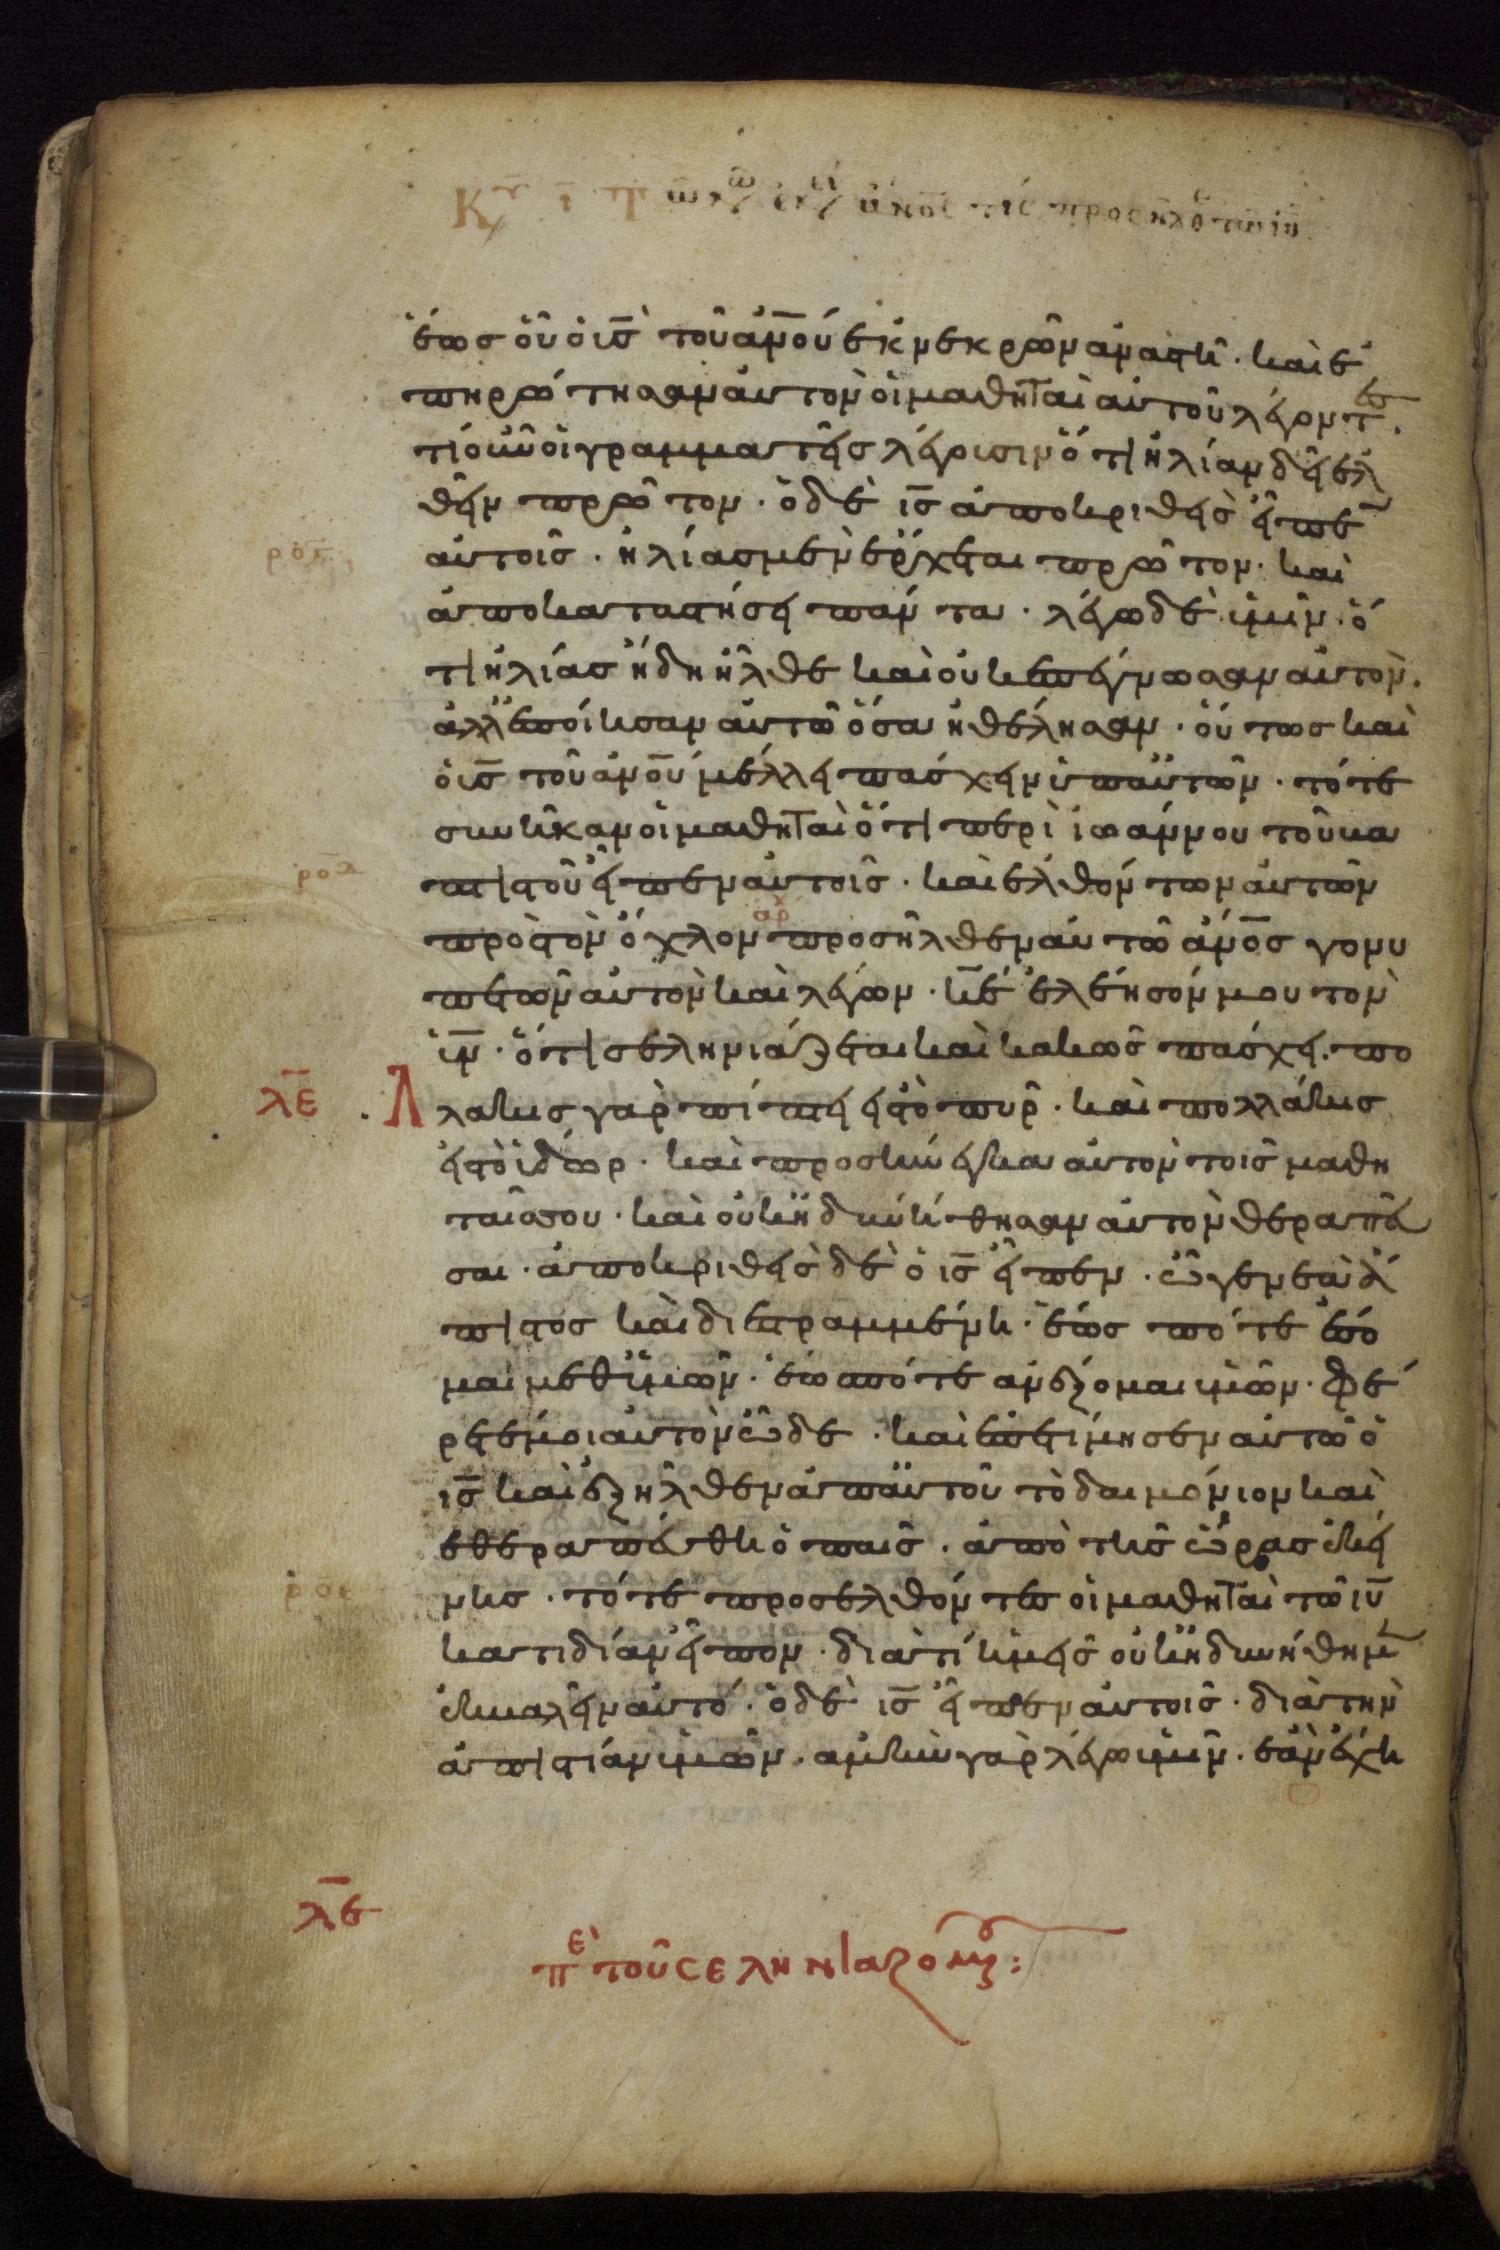 Κυ ῑ Τῶ κ ἐκ ἄν̅ο̅ς τίς προσῆλθ τῶ ι̅υ̅
ἕως οὗ ὁ υ̅ς̅ τοῦ ἀν̅ο̅ύ ἐκ νεκρῶν ἀναστῆ· καὶ ἐ
πηρώτησαν αὐτὸν οἱ μαθηταὶ αὐτοῦ λέγοντες·
τί οὖν οἱ γραμματεῖς λέγουσιν ὅτι ἠλίαν δεῖ ἐλ
θεῖν πρῶτον· ὁ δὲ ι̅ς̅ ἀποκριθεὶς εἶπεν
αὐτοῖς· ἠλίας μὲν ἔρχεται πρῶτον· καὶ
ροβ
ἀποκαταστήσει πάντα· λέγω δὲ ὑμῖν· ὅ
τι ἠλίας ἤδη ἦλθε καὶ οὐκ ἐπέγνωσαν αὐτὸν.
ἀλλ' ἐποίησαν αὐτῶ ὅσα ἠθέλησαν· οὕτως καὶ
ὁ υ̅ς̅ τοῦ ἀν̅ο̅ύ μέλλει πάσχειν ὑπ' αὐτῶν· τότε
συνῆκαν οἱ μαθηταὶ ὅτι περὶ ἰωάννου τοῦ βα
πτιστοῦ εἶπεν αὐτοῖς· καὶ ἐλθόντων αὐτῶν
ροδ
αρχ
πρὸς τὸν ὄχλον προσῆλθεν αὐτῶ ἄν̅ο̅ς γονυ
πετῶν αὐτὸν καὶ λέγων· κ̅ε̅ ἐλέησόν μου τὸν
υ̅ν̅· ὅτι σεληνιάζεται καὶ κακῶς πάσχει· πο
λ̅ε̅ · Λλάκις γὰρ πίπτει εἰς τὸ πῦρ· καὶ πολλάκις
εἰς τὸ ὕδωρ· καὶ προσήνεγκα αὐτὸν τοῖς μαθη
ταῖς σου· καὶ οὐκ ἠδυνήθησαν αὐτὸν θεραπεῦ
σαι· ἀποκριθεὶς δὲ ὁ ι̅ς̅ εἶπεν· ὦ γενεὰ ἄ
πιστος καὶ διεστραμμένη· ἕως πότε ἔσο
μαι μεθ' ὑμῶν· ἕως πότε ἀνέξομαι ὑμῶν· φέ
ρετέ μοι αὐτὸν ὧδε· καὶ ἐπετίμησεν αὐτῶ ὁ
ι̅ς̅ καὶ ἐξῆλθεν ἀπ' αὐτοῦ τὸ δαιμόνιον καὶ
ἐθεραπεύθη ὁ παῖς· ἀπὸ τῆς ὥρας ἐκεί
ροε
νης· τότε προσελθόντες οἱ μαθηταὶ τῶ ι̅υ̅
κατιδίαν εἶπον· διατί ἡμεῖς οὐκ ἠδυνήθημεν
ἐκβαλεῖν αὐτό· ὁ δὲ ι̅ς̅ εἶπεν αὐτοῖς· διὰ τὴν
ἀπιστίαν ὑμῶν· ἀμὴν γὰρ λέγω ὑμῖν· ἐὰν ἔχη
λ̅ε̅
πε τοῦ σεληνιαζομένου: